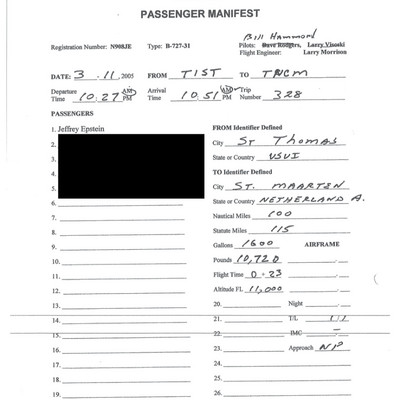 PASSENGER MANIFEST
Bill Hammond
Registration Number: N908JE Type: B-727-31 Pilots: Dave Rodgers, Larry Visoski
Flight Engineer: Larry Morrison
DATE: 3 . 11 , 2005 FROM TIST TO TNCM
Departure Time 10:27 AM PM Arrival Time 10:51 AM PM Trip Number 328
PASSENGERS
1. Jeffrey Epstein
2.
3.
4.
5.
6.
7.
8.
9.
10.
11.
12.
13.
14.
15.
16.
17.
18.
19.
FROM Identifier Defined
City St Thomas
State or Country USVI
TO Identifier Defined
City ST. MAARTEN
State or Country NETHERLAND A.
Nautical Miles 100
Statute Miles 115
Gallons 1600 AIRFRAME
Pounds 10,720
Flight Time 0 + 23
Altitude FL 11,000
20. Night
21. T/L 1/1
22. IMC -
23. Approach NP
24.
25.
26.